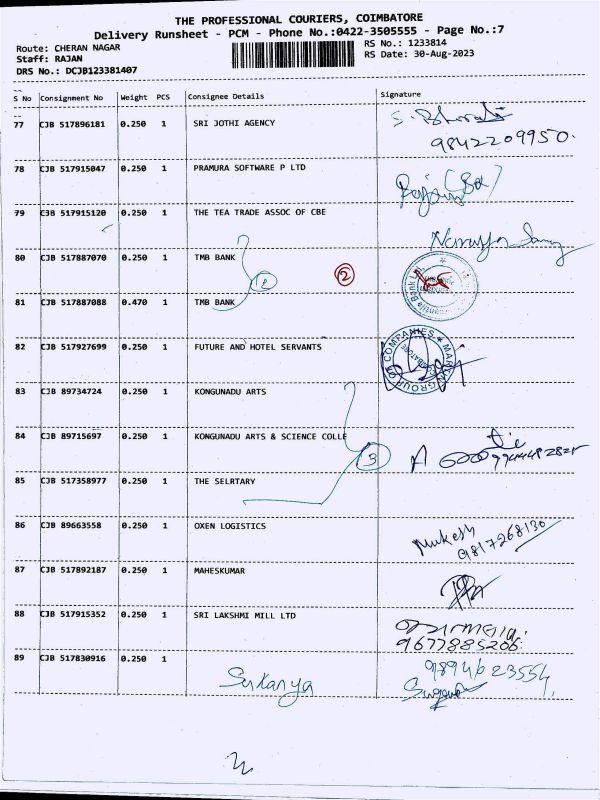 THE PROFESSIONAL COURIERS, COIMBATORE
Delivery Runsheet - PCM - Phone No.:0422-3505555 - Page No.:7
Route: CHERAN NAGAR
RS No.: 1233814
Staff: RAJAN
RS Date: 30-Aug-2023
DRS No.: DCJB123381407
S No Consignment No Weight PCS Consignee Details Signature
77 CJB 517896181 0.250 1 SRI JOTHI AGENCY
9842209950.
78 CJB 517915047 0.250 1 PRAMURA SOFTWARE P LTD
79 CJB 517915120 0.250 1 THE TEA TRADE ASSOC OF CBE
80 CJB 517887070 0.250 1 TMB BANK
2
81 CJB 517887088 0.470 1 TMB BANK
82 CJB 517927699 0.250 1 FUTURE AND HOTEL SERVANTS
GROUP OF COMPANIES
83 CJB 89734724 0.250 1 KONGUNADU ARTS
84 CJB 89715697 0.250 1 KONGUNADU ARTS & SCIENCE COLLE
3
85 CJB 517358977 0.250 1 THE SELRTARY
86 CJB 89663558 0.250 1 OXEN LOGISTICS
Mukesh
9817268130
87 CJB 517892187 0.250 1 MAHESKUMAR
88 CJB 517915352 0.250 1 SRI LAKSHMI MILL LTD
9677885206.
89 CJB 517830916 0.250 1
Sukanya
9894623554